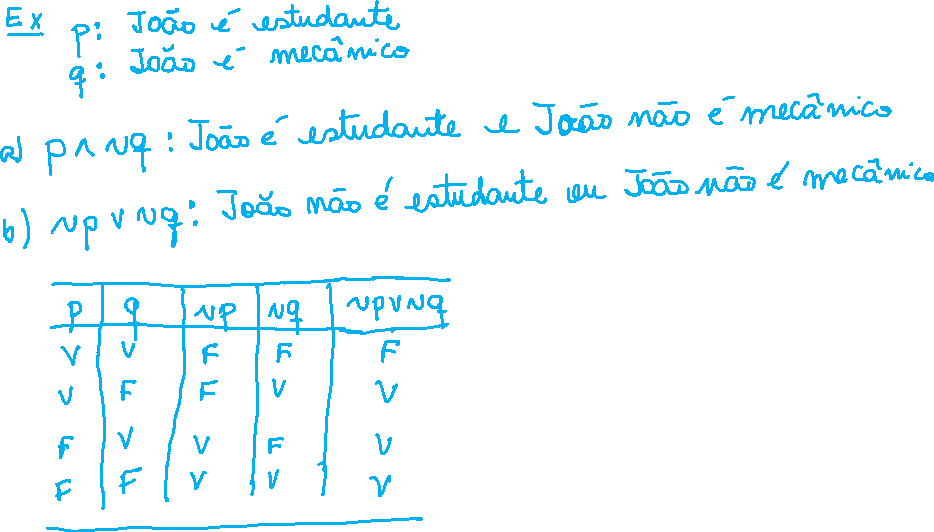 Ex p: João é estudante
q: João é mecânico
a) p ∧ ~q : João é estudante e João não é mecânico
b) ~p ∨ ~q : João não é estudante ou João não é mecânico
p q ~p ~q ~p∨~q
V V F F F
V F F V V
F V V F V
F F V V V